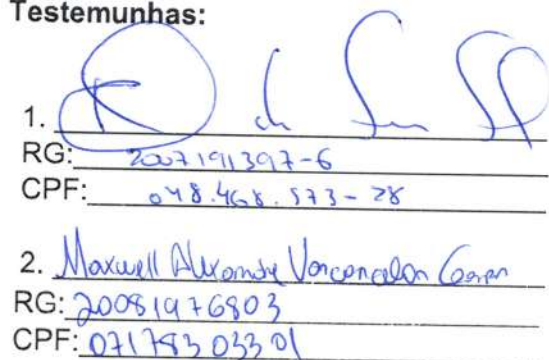 Testemunhas:
1.
RG: 2007191397-6
CPF: 048.468.573-28
2. Maxwell Alexandre Vasconcelos
RG: 20081976803
CPF: 07178303301